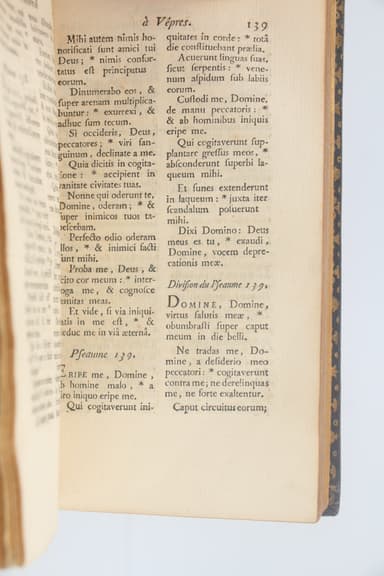 à Vêpres. 139
Mihi autem nimis ho-
norificati sunt amici tui
Deus; * nimis confor-
tatus est principatus
eorum.
Dinumerabo eos, &
super arenam multiplica-
buntur: * exurrexi, &
adhuc sum tecum.
Si occideris, Deus,
peccatores; * viri san-
guinum, declinate a me.
Quia dicitis in cogita-
tione: * accipient in
vanitate civitates tuas.
Nonne qui oderunt te,
Domine, oderam; * &
super inimicos tuos ta-
bescebam.
Perfecto odio oderam
illos, * & inimici facti
sunt mihi.
Proba me, Deus, &
scito cor meum: * inter-
roga me, & cognosce
semitas meas.
Et vide, si via iniqui-
tatis in me est, * &
deduc me in viâ æternâ.
Pseaume 139.
ERIPE me, Domine,
ab homine malo, * a
viro iniquo eripe me.
Qui cogitaverunt ini-
quitates in corde: * totâ
die constituebant prælia.
Acuerunt linguas suas,
sicut serpentis: * vene-
num aspidum sub labiis
eorum.
Custodi me, Domine,
de manu peccatoris: *
& ab hominibus iniquis
eripe me.
Qui cogitaverunt sup-
plantare gressus meos, *
absconderunt superbi la-
queum mihi.
Et funes extenderunt
in laqueum: * juxta iter
scandalum posuerunt
mihi.
Dixi Domino: Deus
meus es tu, * exaudi,
Domine, vocem depre-
cationis meæ.
Division du Pseaume 139.
DOMINE, Domine,
virtus salutis meæ, *
obumbrasti super caput
meum in die belli.
Ne tradas me, Do-
mine, a desiderio meo
peccatori: * cogitaverunt
contra me; ne derelinquas
me, ne forte exaltentur.
Caput circuitus eorum;